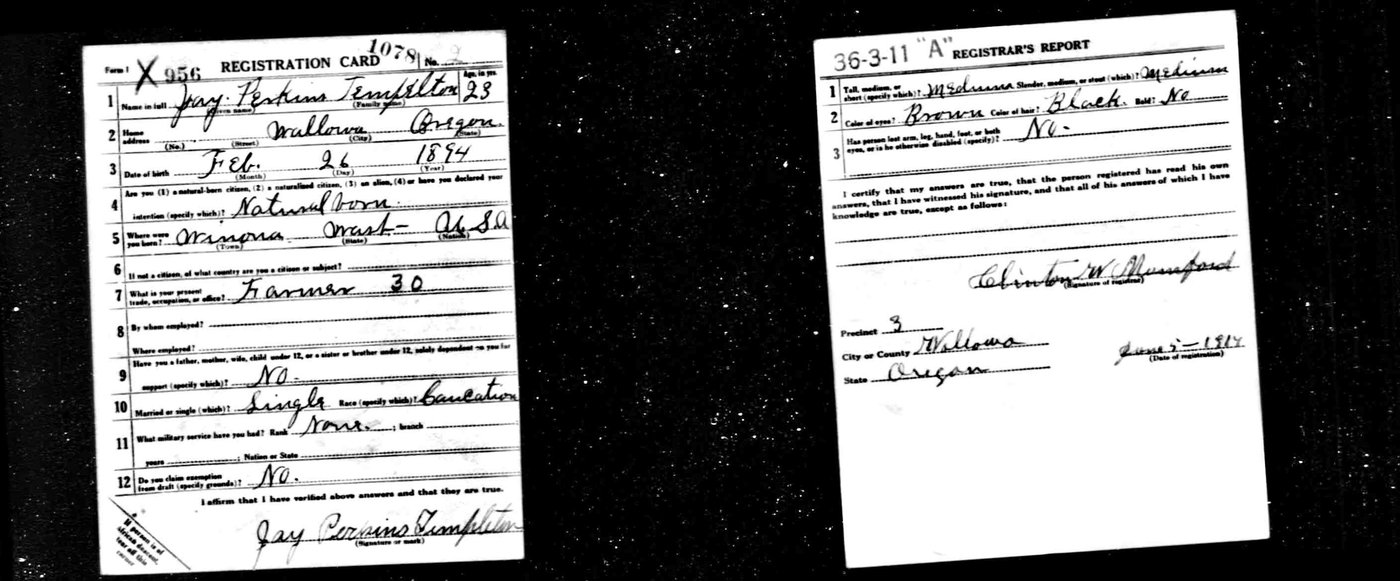 Form 1 X 956 REGISTRATION CARD 1078 No.
1 Name in full Jay Perkins Tempelton Age, in yrs. 23
(Given name) (Family name)
2 Home address Wallowa Oregon
(No.) (Street) (City) (State)
3 Date of birth Feb. 26 1894
(Month) (Day) (Year)
4 Are you (1) a natural-born citizen, (2) a naturalized citizen, (3) an alien, (4) or have you declared your
intention (specify which)? Natural born.
5 Where were you born? Winona Wash- U.S.A
(Town) (State) (Nation)
6 If not a citizen, of what country are you a citizen or subject?
7 What is your present trade, occupation, or office? Farmer 30
8 By whom employed?
Where employed?
9 Have you a father, mother, wife, child under 12, or a sister or brother under 12, solely dependent on you for
support (specify which)? No.
10 Married or single (which)? Single Race (specify which)? Caucation
11 What military service have you had? Rank None. ; branch
years ; Nation or State
12 Do you claim exemption from draft (specify grounds)? No.
I affirm that I have verified above answers and that they are true.
Jay Perkins Templeton
(Signature or mark)
If person is of
African descent,
tear off this
corner
36-3-11 "A" REGISTRAR'S REPORT
1 Tall, medium, or short (specify which)? Medium Slender, medium, or stout (which)? Medium
2 Color of eyes? Brown Color of hair? Black. Bald? No
3 Has person lost arm, leg, hand, foot, or both eyes, or is he otherwise disabled (specify)? No-
I certify that my answers are true, that the person registered has read his own
answers, that I have witnessed his signature, and that all of his answers of which I have
knowledge are true, except as follows:
Clinton W
(Signature of registrar)
Precinct 3
City or County Wallowa
June 5-1917
(Date of registration)
State Oregon